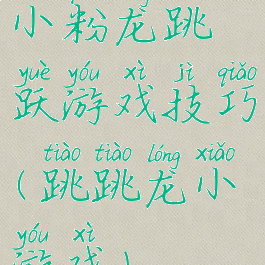 小粉龙跳
yuè yóu xì jì qiǎo
跃游戏技巧
tiào tiào lóng xiǎo
(跳跳龙小
yóu xì
游戏)